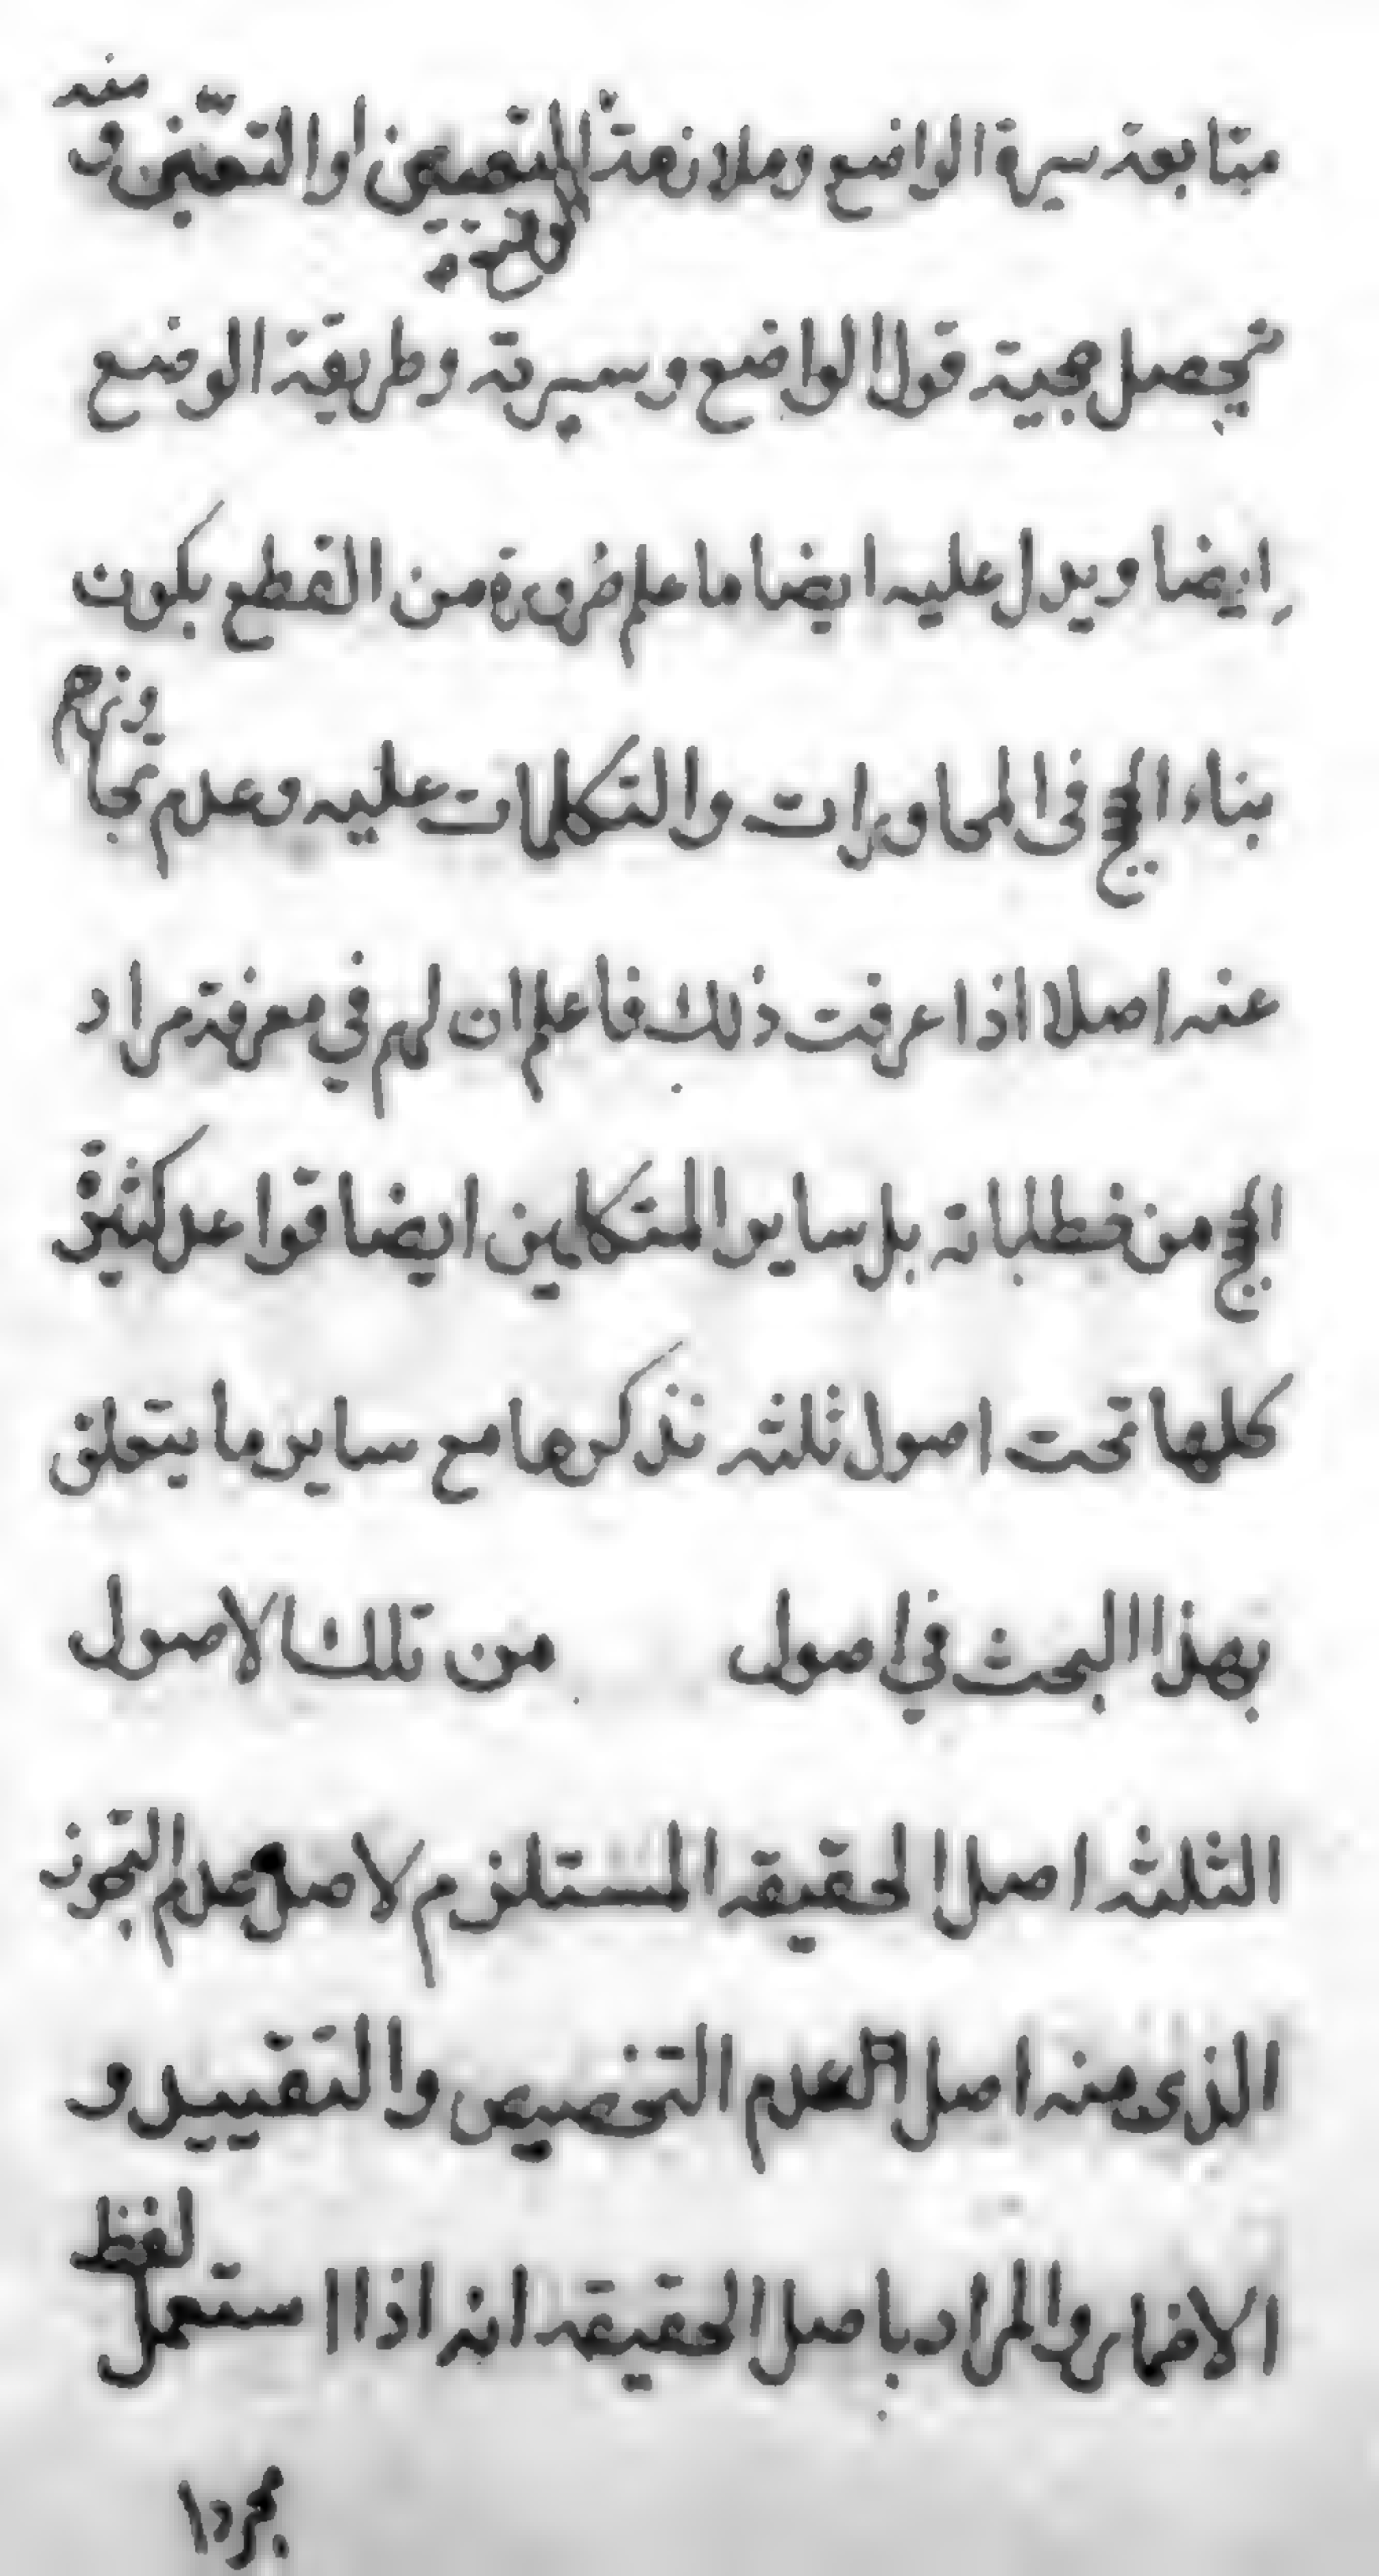 متابعة سيرة الواضع وملازمة التعيين او التعيّن ومنه
تحصل حجية قول الواضع وسيرته وطريقة الوضع
ايضا ويدل عليه ايضا ما علم ضرورة من القطع بكون
بناء الحجج فى المحاورات والتكلمات عليه وعدم تجاوزهم
عنه اصلا اذا عرفت ذلك فاعلم ان لهم في معرفة مراد
الحجج من خطاباته بل ساير المتكلمين ايضا قواعد كثيرة
كلها تحت اصول ثلثه نذكرها مع ساير ما يتعلق
بهذا البحث في اصول من تلك الاصول
الثلثه اصل الحقيقه المستلزم لاصل عدم التجوز
الذى منه اصل العدم التخصيص والتقييد و
الاضمار والمراد باصل الحقيقه انه اذا استعمل لفظ
مجردا